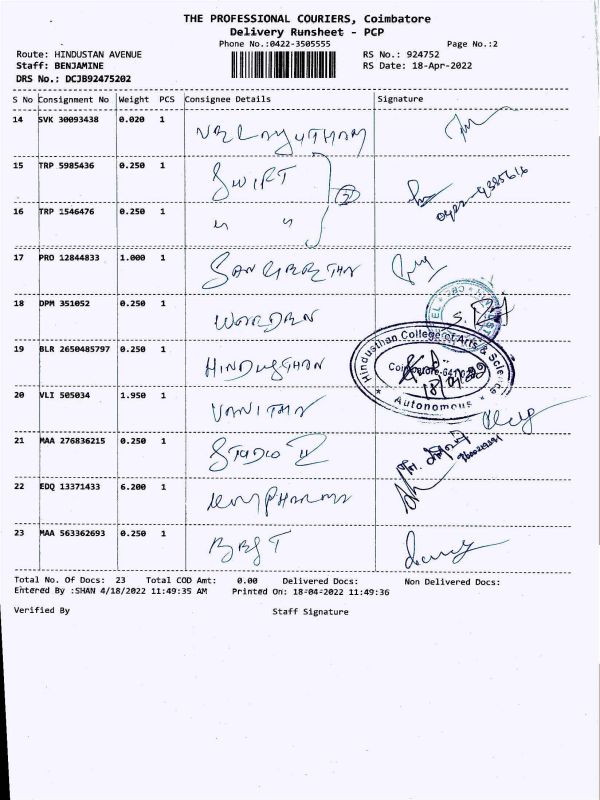 THE PROFESSIONAL COURIERS, Coimbatore
Delivery Runsheet - PCP
Phone No.:0422-3505555 Page No.:2
Route: HINDUSTAN AVENUE RS No.: 924752
Staff: BENJAMINE RS Date: 18-Apr-2022
DRS No.: DCJB92475202
S No Consignment No Weight PCS Consignee Details Signature
14 SVK 30093438 0.020 1 VELAYUTHAM
15 TRP 5985436 0.250 1 SWIFT
2
0422-4385616
16 TRP 1546476 0.250 1 " "
17 PRO 12844833 1.000 1 SANGEEETHA
18 DPM 351052 0.250 1 WARDEN
19 BLR 2650485797 0.250 1 HINDUSTHAN
Hindusthan College of Arts & Science
Coimbatore-641028
Autonomous
20 VLI 505034 1.950 1 VANITHA
21 MAA 276836215 0.250 1 STUDIO
22 EDQ 13371433 6.200 1
23 MAA 563362693 0.250 1 BEST
Total No. Of Docs: 23 Total COD Amt: 0.00 Delivered Docs: Non Delivered Docs:
Entered By :SHAN 4/18/2022 11:49:35 AM Printed On: 18-04-2022 11:49:36
Verified By Staff Signature